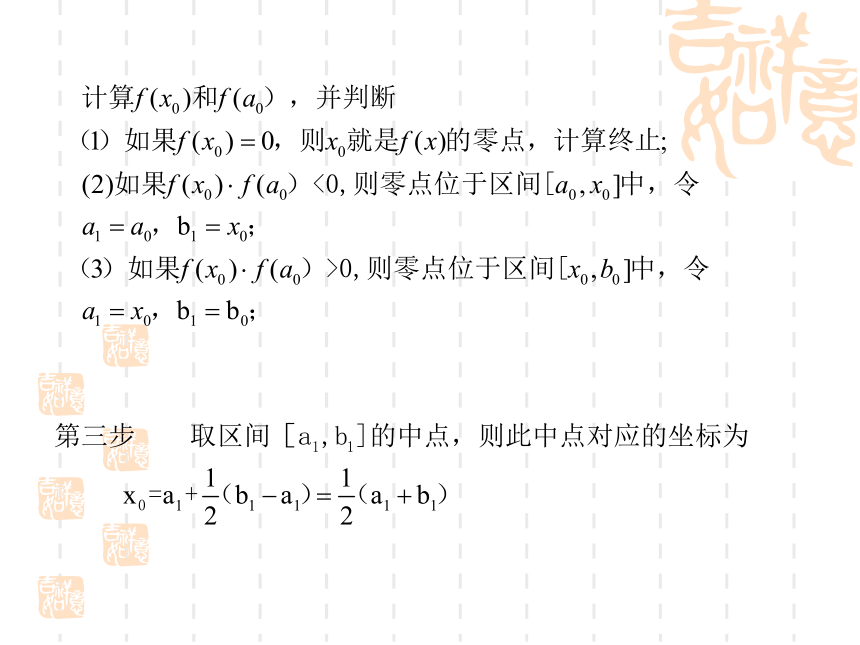 计算f(x₀)和f(a₀），并判断
（1）如果f(x₀)=0，则x₀就是f(x)的零点，计算终止;
(2)如果f(x₀)·f(a₀）<0,则零点位于区间[a₀,x₀]中，令
a₁=a₀，b₁=x₀；
（3）如果f(x₀)·f(a₀）>0,则零点位于区间[x₀,b₀]中，令
a₁=x₀，b₁=b₀；
第三步 取区间［a₁,b₁]的中点，则此中点对应的坐标为
x₀=a₁+\frac{1}{2}（b₁−a₁）=\frac{1}{2}（a₁+b₁）
吉祥如意
吉祥如意
吉祥如意
吉祥如意
吉祥如意
吉祥如意
吉祥如意